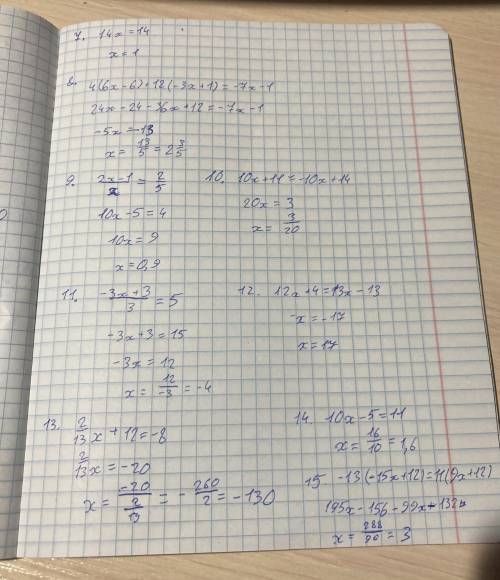 7. 14x=14
x=1
8. 4(6x-6)+12(-3x+1)=-7x-1
24x-24-36x+12=-7x-1
-5x=-13
x= 13/5 =2 3/5
9. 2x-1/2 = 2/5
10x-5=4
10x=9
x=0,9
10. 10x+11=-10x+14
20x=3
x= 3/20
11. -3x+3/3 =5
-3x+3=15
-3x=12
x= 12/-3 =-4
12. 12x+4=13x-13
-x=-17
x=17
13. 2/13 x+12=-8
2/13 x=-20
x= -20/(2/13) = - 260/2 =-130
14. 10x-5=11
x= 16/10 =1,6
15. -13(-15x+12)=11(9x+12)
195x-156-99x-132
x= 288/96 =3